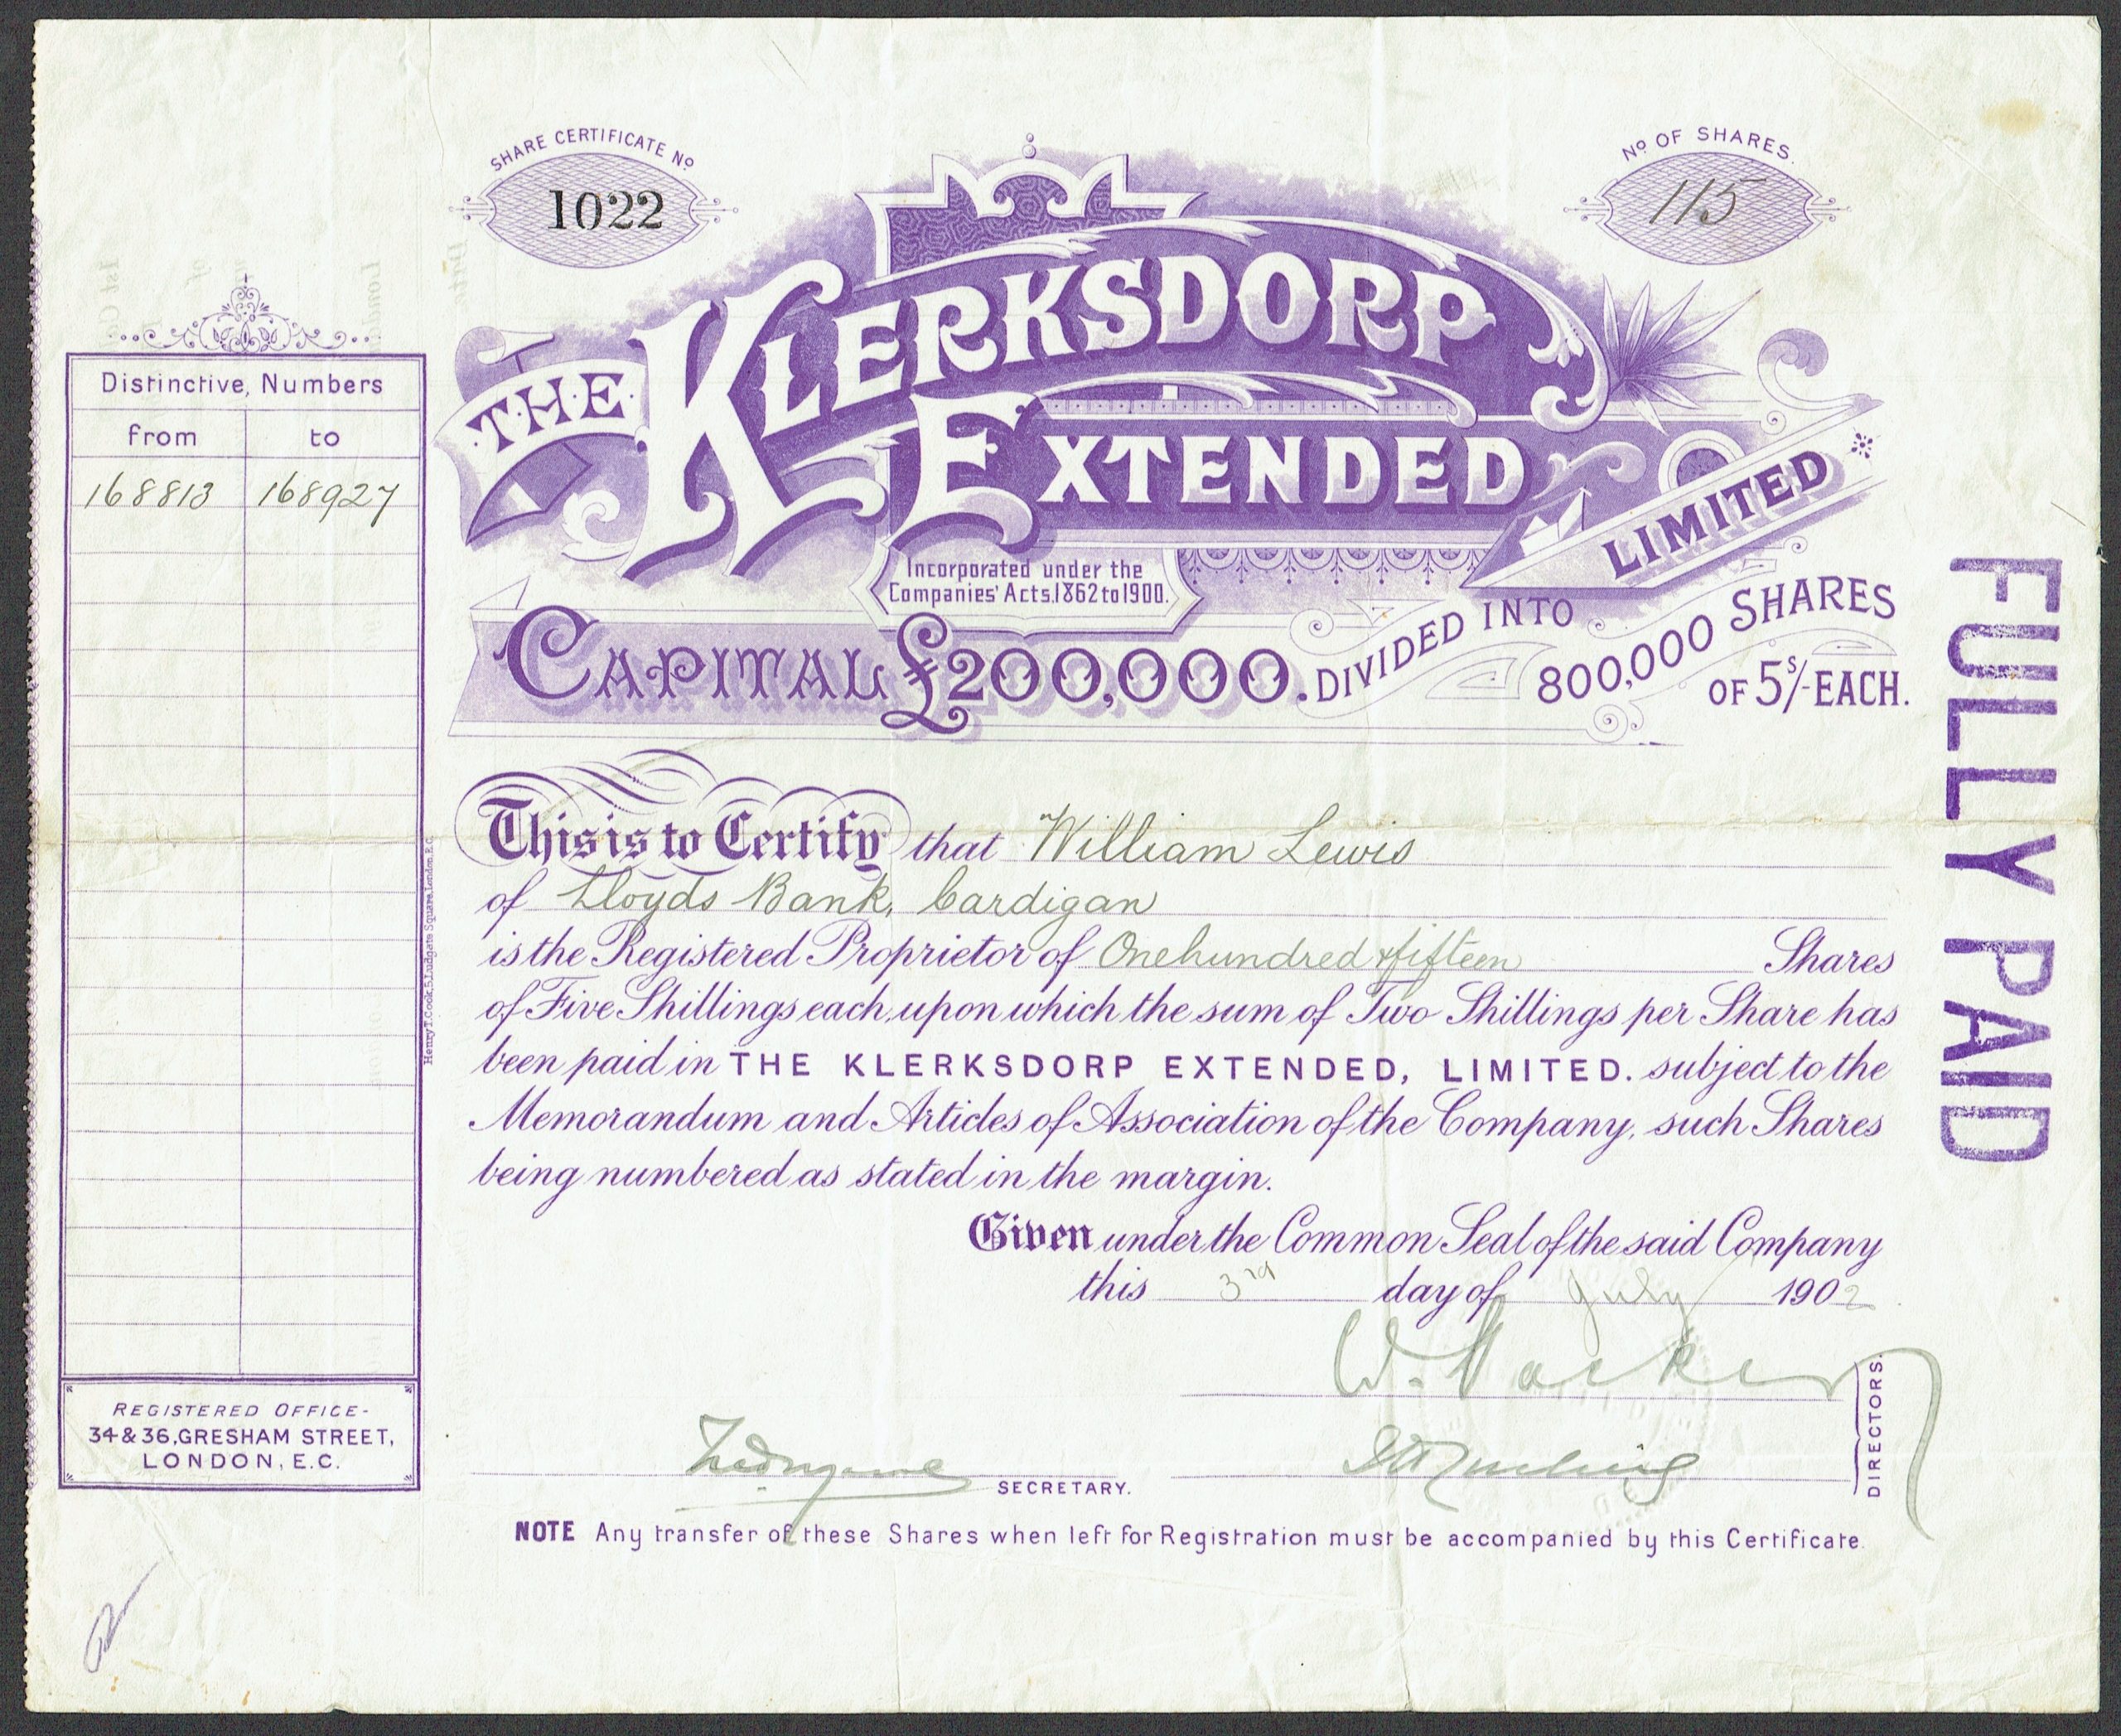 SHARE CERTIFICATE No
1022
No OF SHARES.
115
THE KLERKSDORP
EXTENDED
LIMITED
Incorporated under the
Companies' Acts, 1862 to 1900.
CAPITAL £200,000. DIVIDED INTO
800,000 SHARES
OF 5s/- EACH.
Distinctive, Numbers
from to
168813 168927
This is to Certify that William Lewis
of Lloyds Bank, Cardigan
is the Registered Proprietor of One hundred & fifteen Shares
of Five Shillings each, upon which the sum of Two Shillings per Share has
been paid in THE KLERKSDORP EXTENDED, LIMITED. subject to the
Memorandum and Articles of Association of the Company, such Shares
being numbered as stated in the margin.
Given under the Common Seal of the said Company
this 3rd day of July 1902
DIRECTORS.
SECRETARY.
NOTE Any transfer of these Shares when left for Registration must be accompanied by this Certificate.
REGISTERED OFFICE-
34 & 36, GRESHAM STREET,
LONDON, E.C.
Henry T. Cook, 5, Ludgate Square, London, E.C.
FULLY PAID